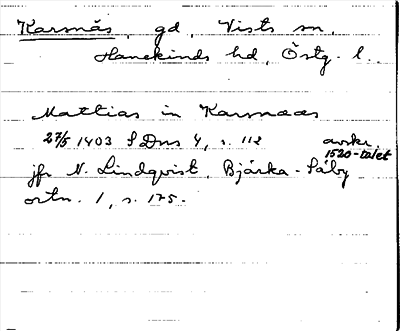 Karsnäs, gd, Vists sn,
Hanekinds hd, Östg. l.
Mattias in Karsnaas
27/5 1403 SDns 4, s. 112 avskr.
1520-talet
jfr N. Lindqvist, Bjärka-Säby
ortn. 1, s. 175.